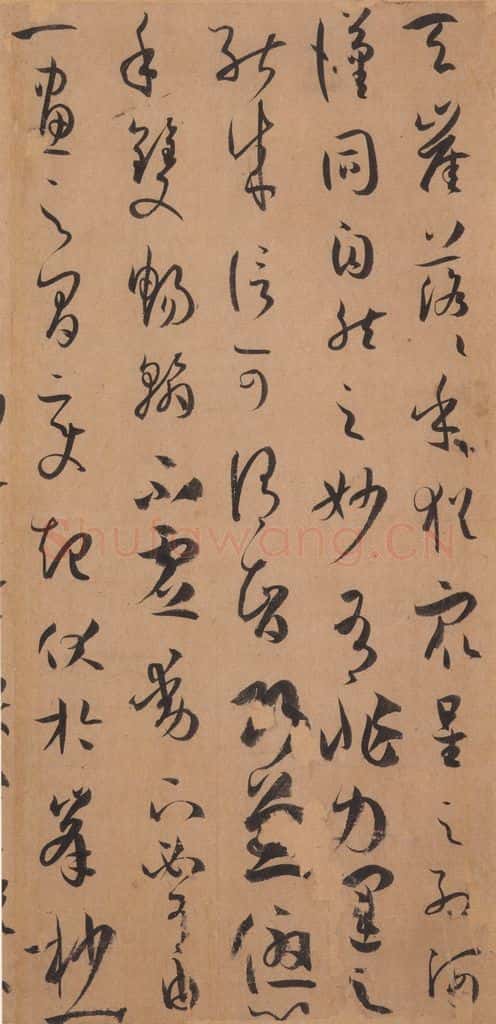 天崖落〻乎猶眾星之列河
漢同自然之妙有非力運之
能成信可謂智巧兼優心
手雙暢翰不虛動下必有由
一畫之間變起伏於峯杪一
Shufawang.CN